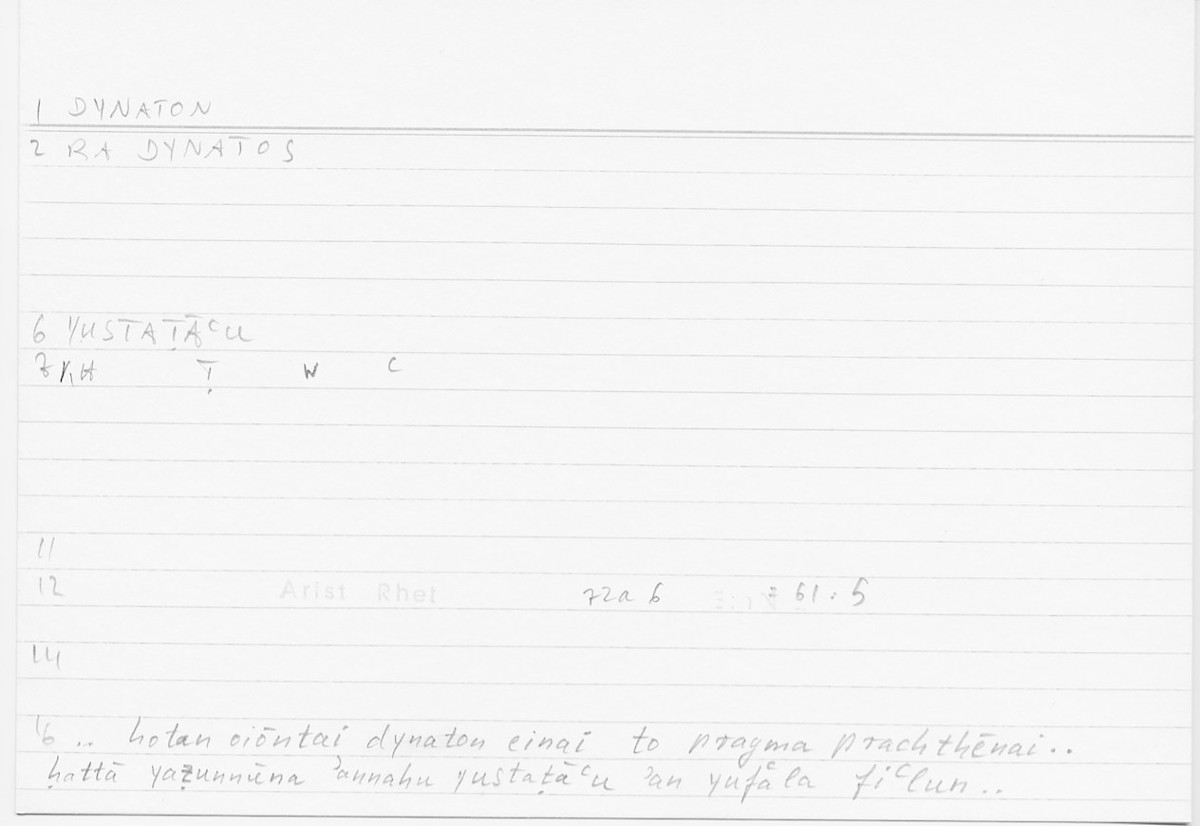 1 DYNATON
2 RA DYNATOS
6 YUSTAṬĀʿU
7 KH Ṭ W ʿ
11
12 Arist Rhet 72a 6 = 61:5
14
16 .. hotan oiōntai dynaton einai to pragma prachthēnai..
ḥattā yaẓunnūna ʾannahu yustaṭāʿu ʾan yufʿala fiʿlun..